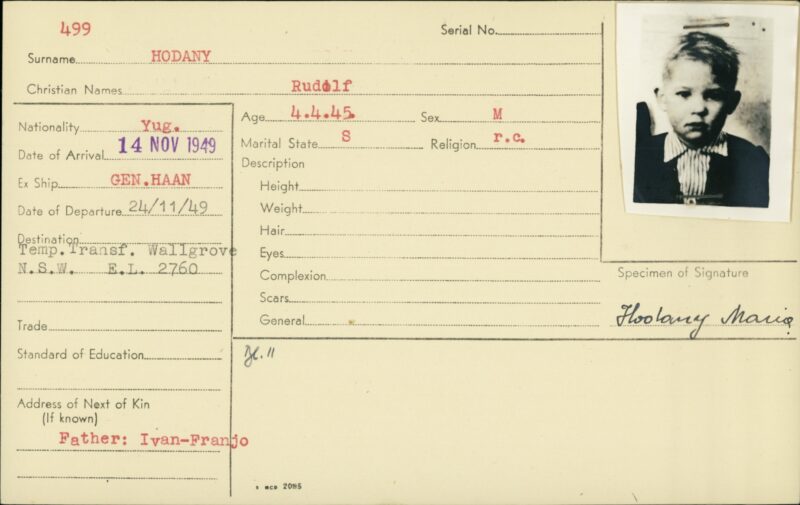 499
Serial No.
Surname HODANY
Christian Names Rudolf
Nationality Yug.
Date of Arrival 14 NOV 1949
Ex Ship GEN.HAAN
Date of Departure 24/11/49
Destination
Temp.Transf. Wallgrove
N.S.W. E.L. 2760
Trade
Standard of Education
Address of Next of Kin
(If known)
Father: Ivan-Franjo
Age 4.4.45. Sex M
Marital State S Religion r.c.
Description
Height
Weight
Hair
Eyes
Complexion
Scars
General
Specimen of Signature
Hodany Maria
Bl. 11